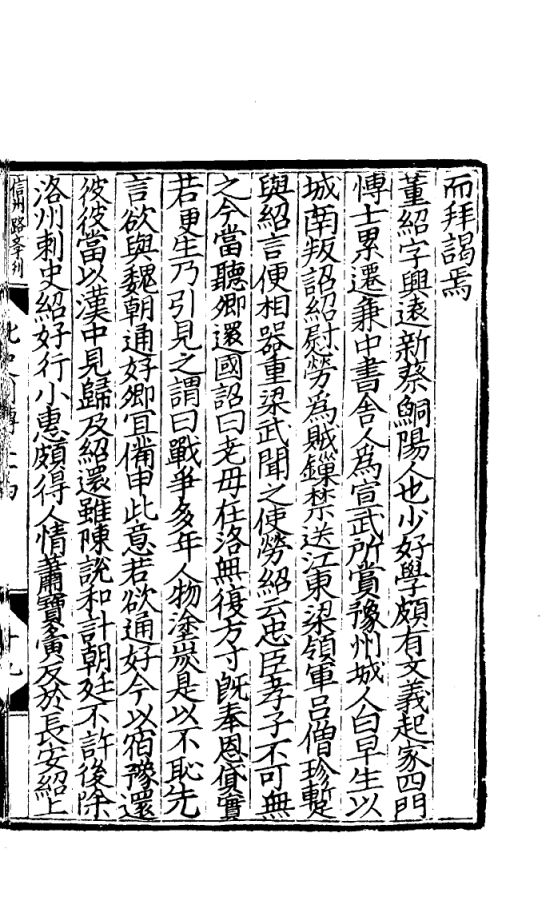 而拜謁焉
董紹字興遠新蔡鮦陽人也少好學頗有文義起家四門
博士累遷兼中書舍人爲宣武所賞豫州城人白早生以
城南叛詔紹慰勞爲賊鏁禁送江東梁領軍呂僧珍暫
與紹言便相器重梁武聞之使勞紹云忠臣孝子不可無
之今當聽卿還國詔曰老母在洛無復方寸旣奉恩貸實
若更生乃引見之謂曰戰爭多年人物塗炭是以不恥先
言欲與魏朝通好卿宜備申此意若欲通好今以宿豫還
彼彼當以漢中見歸及紹還雖陳說和計朝廷不許後除
洛州刺史紹好行小惠頗得人情蕭寶夤反於長安紹上
信州路學刊
北史列傳
十九